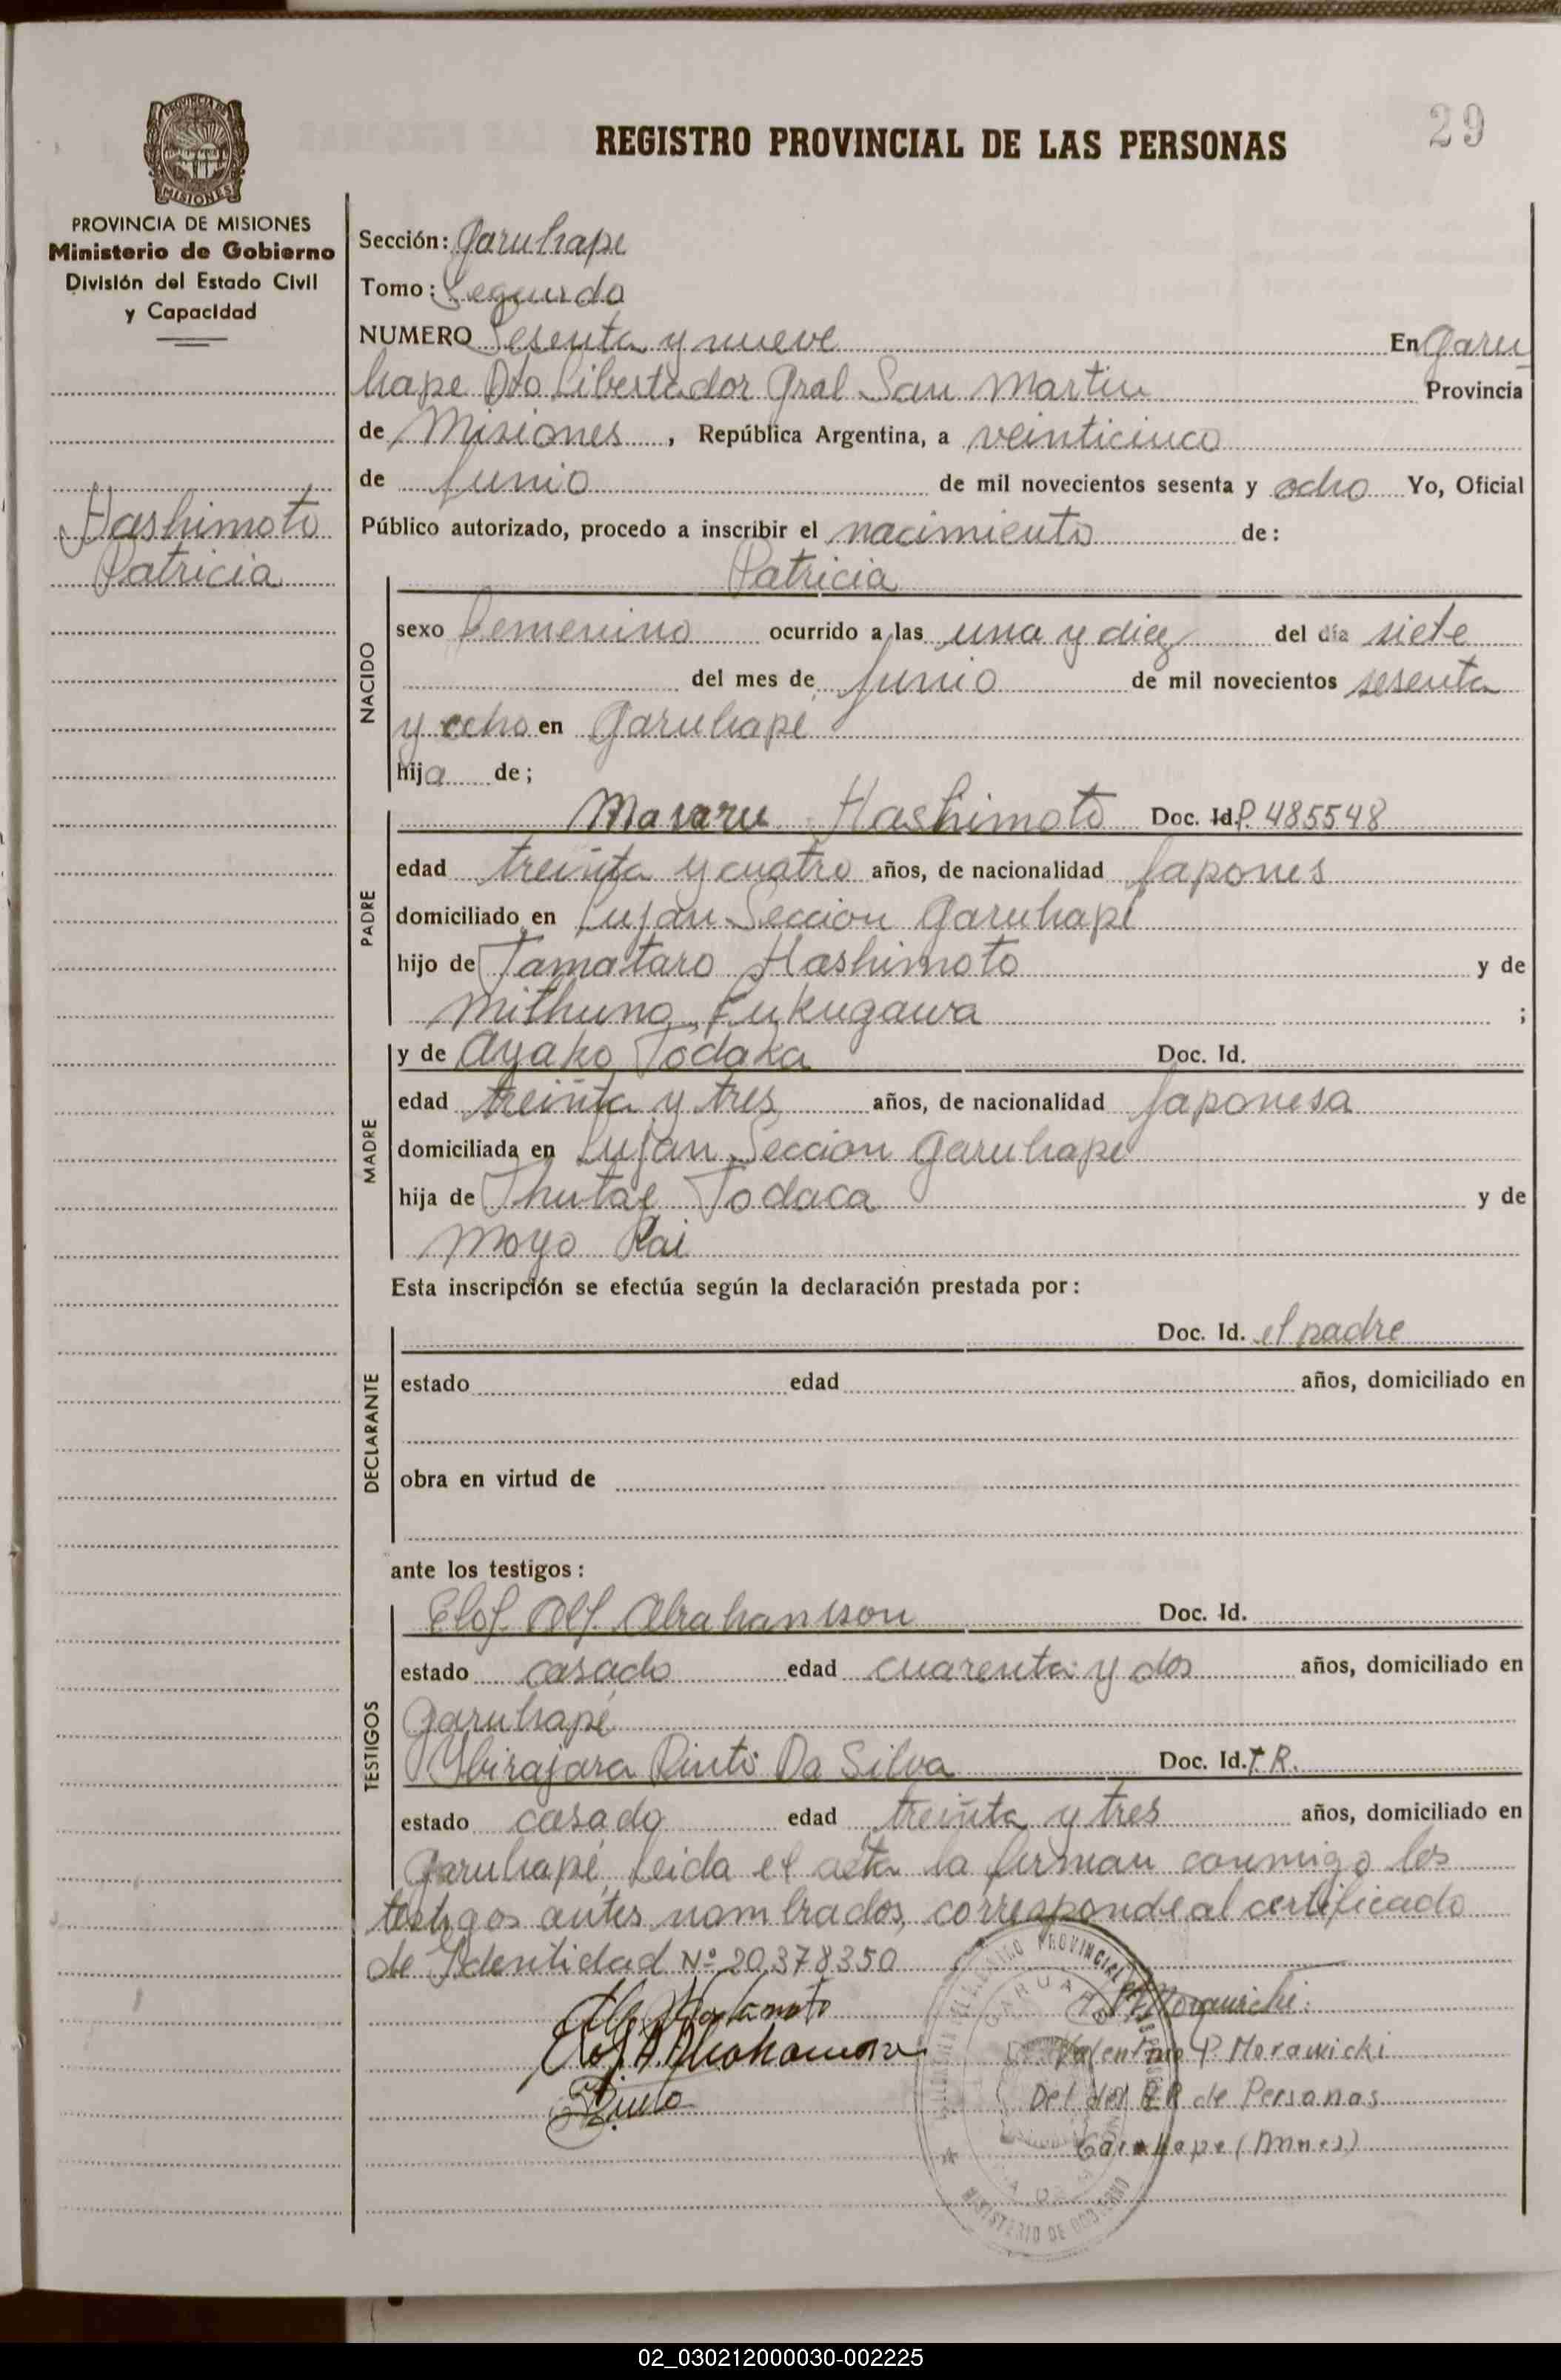 29
PROVINCIA DE MISIONES
Ministerio de Gobierno
División del Estado Civil
y Capacidad
Hashimoto
Patricia
REGISTRO PROVINCIAL DE LAS PERSONAS
Sección: Garuhape
Tomo: Segundo
NUMERO Sesenta y nueve En Garu
hape Dto Libertador Gral San Martin Provincia
de Misiones, República Argentina, a veinticinco
de Junio de mil novecientos sesenta y ocho Yo, Oficial
Público autorizado, procedo a inscribir el nacimiento de:
Patricia
NACIDO
sexo femenino ocurrido a las una y diez del día siete
del mes de Junio de mil novecientos sesenta
y ocho en Garuhapé
hija de;
PADRE
Masaru Hashimoto Doc. Id. P. 485548
edad treinta y cuatro años, de nacionalidad Japones
domiciliado en Lujan Seccion Garuhapé
hijo de Tamataro Hashimoto y de
Mithuno Fukugawa ;
MADRE
y de Ayako Todaka Doc. Id.
edad treinta y tres años, de nacionalidad Japonesa
domiciliada en Lujan Seccion Garuhape
hija de Thutae Todaca y de
Moyo Kai
Esta inscripción se efectúa según la declaración prestada por:
DECLARANTE
Doc. Id. el padre
estado edad años, domiciliado en
obra en virtud de
ante los testigos:
TESTIGOS
Elof. Olf. Abrahamsson Doc. Id.
estado casado edad cuarenta y dos años, domiciliado en
Garuhapé
Ybirajara Pinto Da Silva Doc. Id. T.R.
estado casado edad treinta y tres años, domiciliado en
Garuhapé, Leida el acta la firman conmigo los
testigos antes nombrados, corresponde al certificado
de Identidad Nº 20,378350
Valentino P. Morawicki
Del del R.P. de Personas
Garuhape (Mnes)
MINISTERIO DE GOBIERNO
02_030212000030-002225